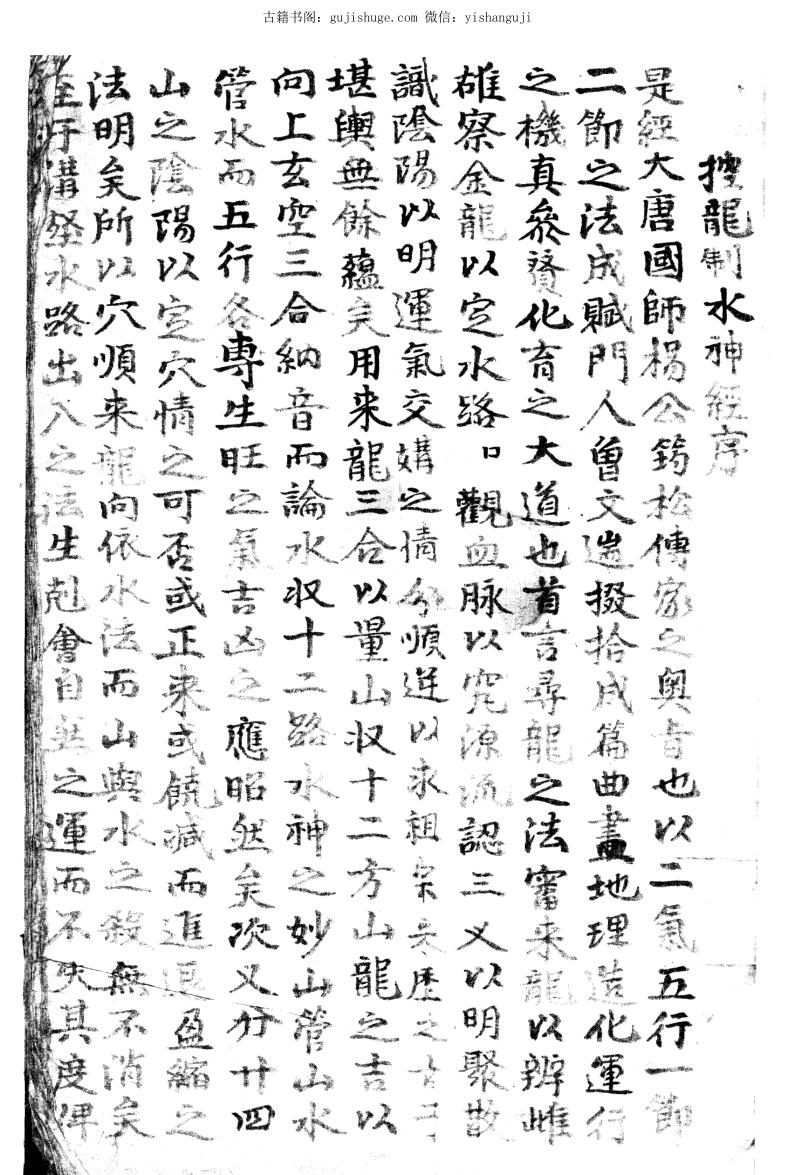 古籍书阁：gujishuge.com 微信：yishanguji
捜龍制水神經序
是經大唐國師楊公筠松傳家之奧旨也以二氣五行一節
二節之法成賦門人曾文遄掇拾成篇曲畫地理造化運行
之機真叅贊化育之大道也首言尋龍之法審来龍以辨雌
雄察金龍以定水路口觀血脉以究源流認三义以明聚散
識陰陽以明運氣交媾之情分順逆以求祖宗来歴之
堪輿無餘蘊矣用来龍三合以量山収十二方山龍之吉以
向上玄空三合納音而論水収十二路水神之妙山管山水
管水而五行各専生旺之氣吉凶之應昭然矣次又分廿四
山之陰陽以定穴情之可否或正来或饒减而進退盈縮之
法明矣所以穴順来龍向依水法而山與水之殺無不消矣
至于溝壑水路出入之法生剋會自然之運而不失其度俾